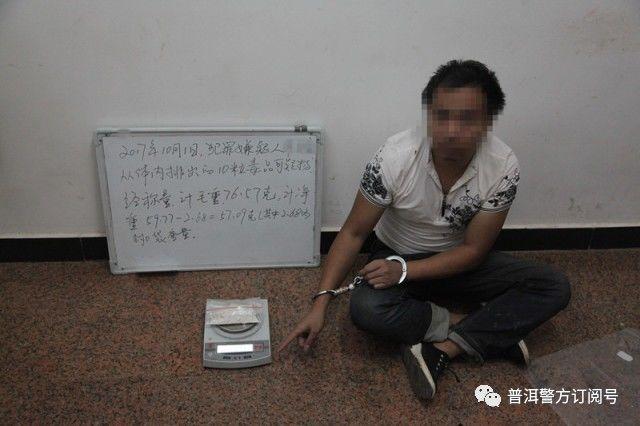 2017年10月1日,犯罪嫌疑人
从体内排出的10粒毒品可疑物
经称量,计毛重76.57克,计净
重59.77-2.68=57.09克(其中2.68为
封口袋重量.
普洱警方订阅号